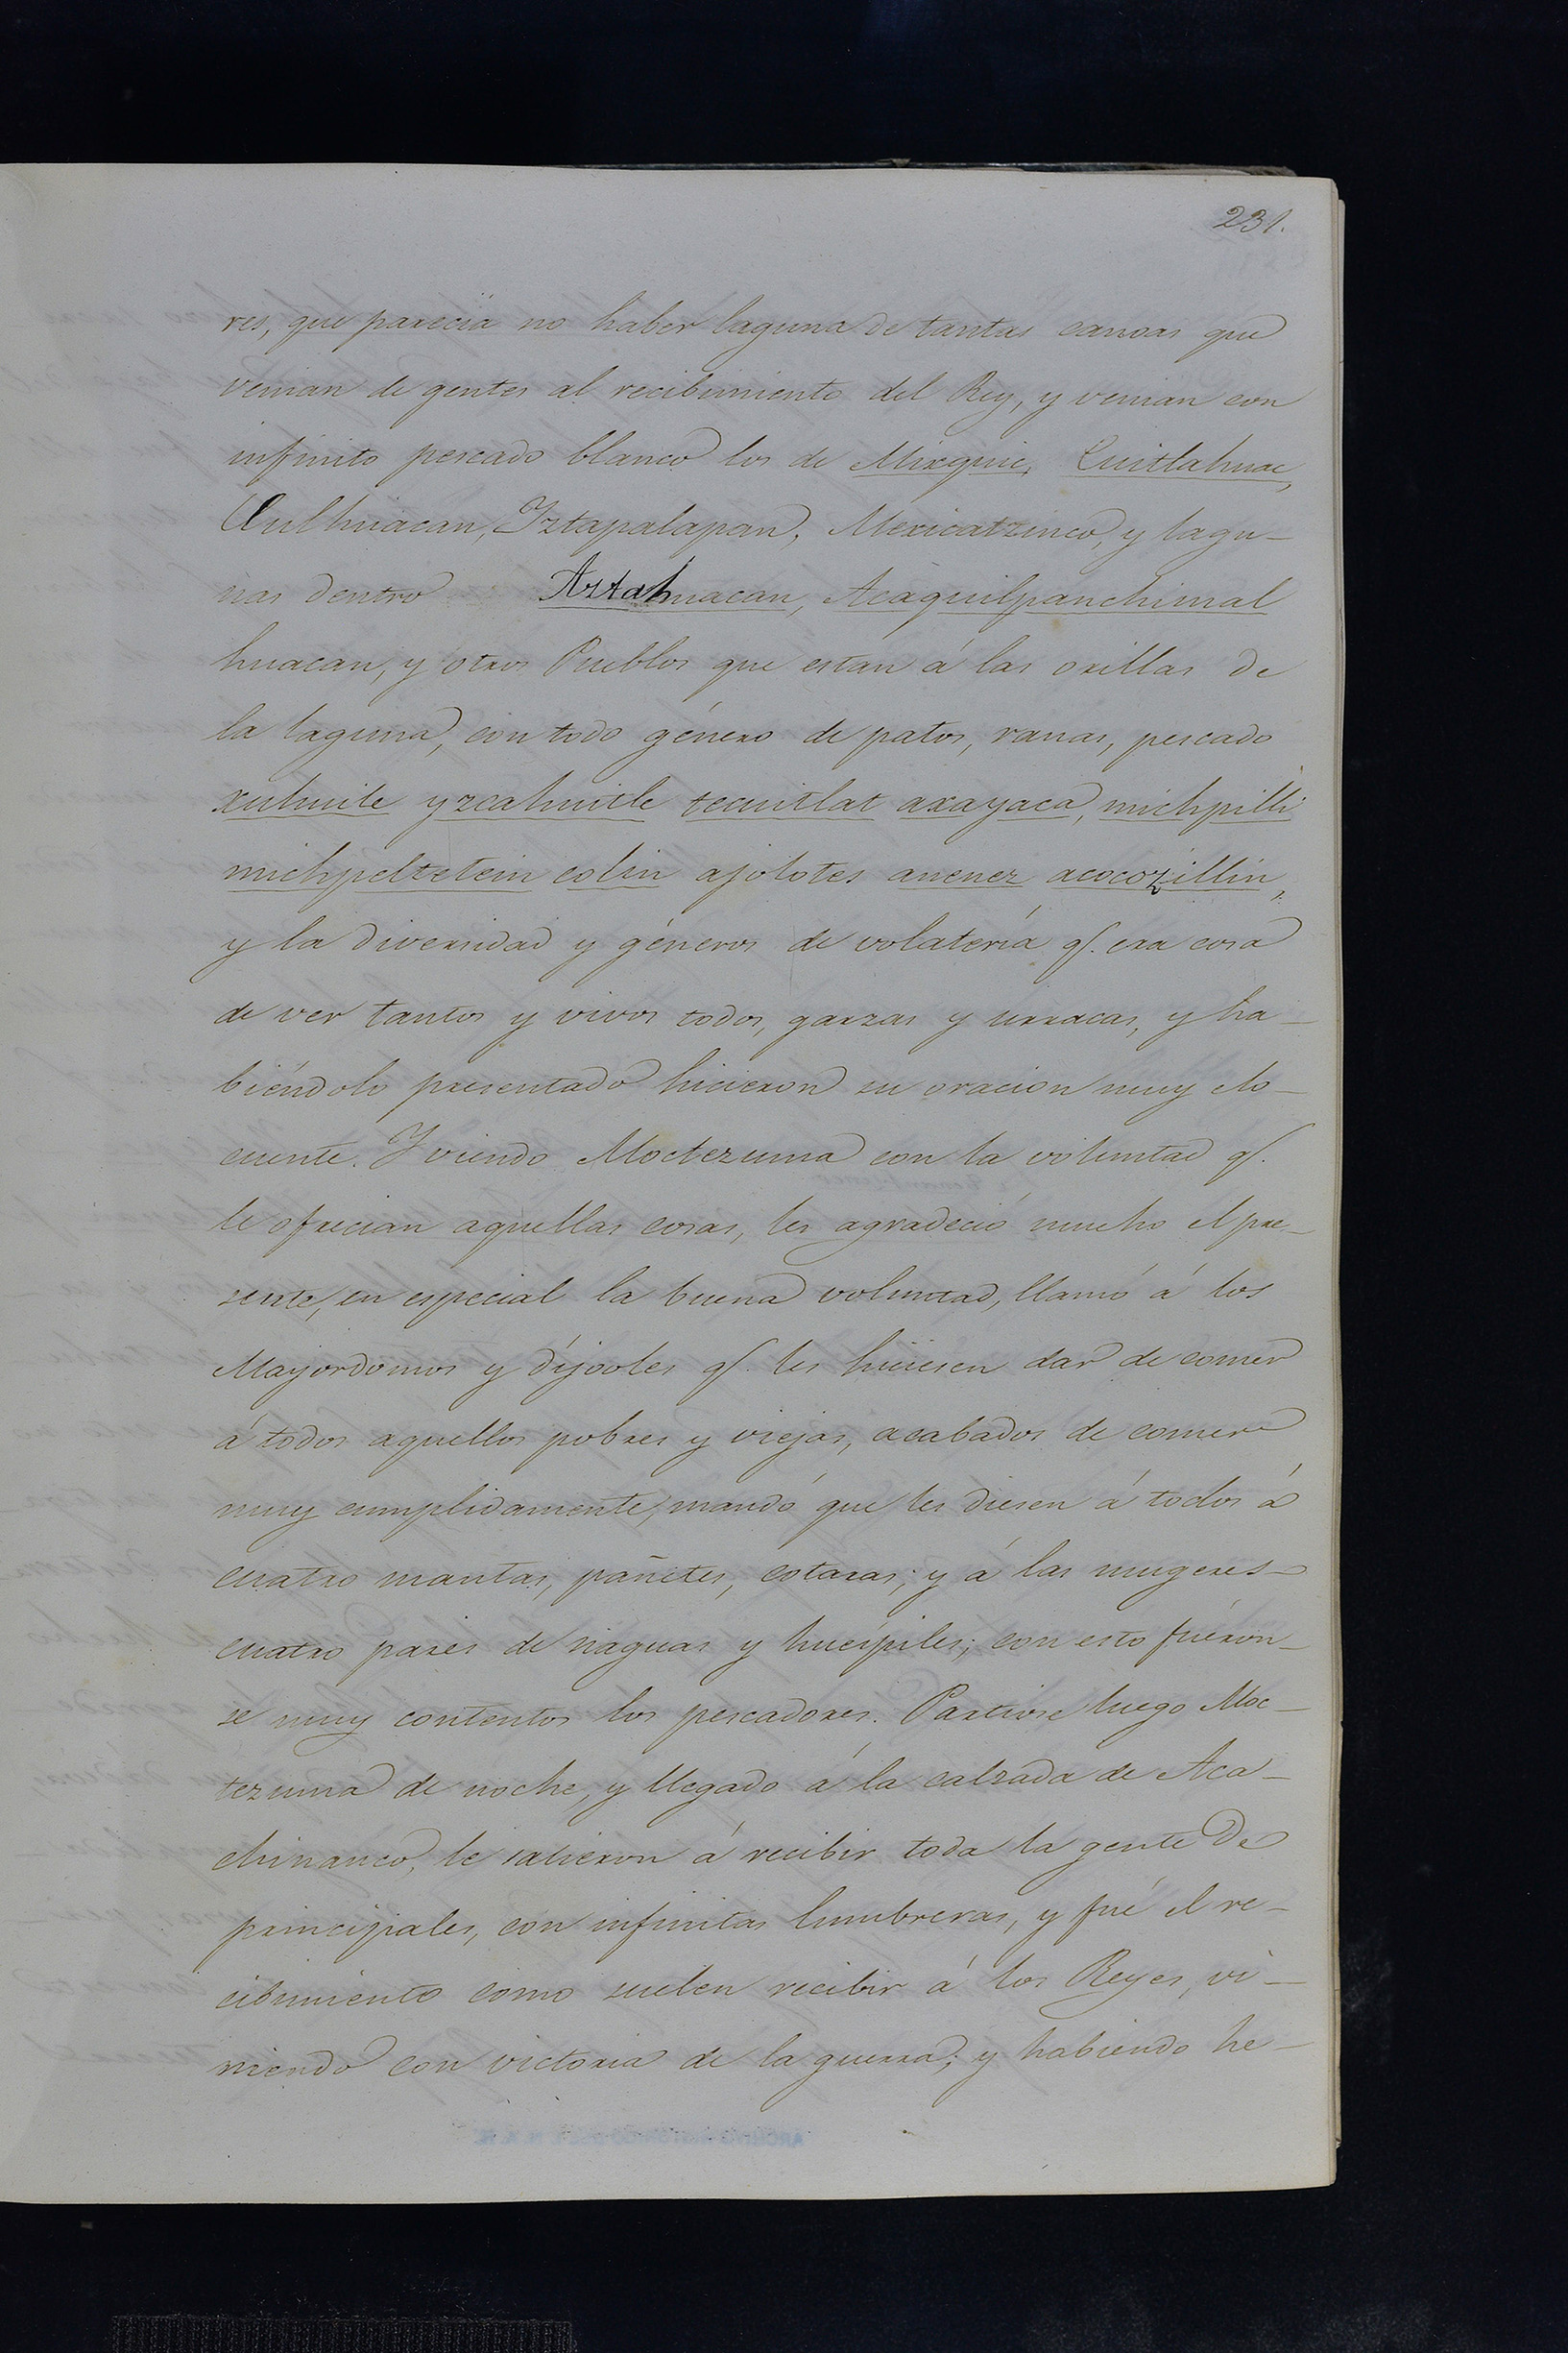 231.
res, que parecia no haber laguna de tantas canoas que
venian de gentes al recibimiento del Rey, y venian con
infinito pescado blanco los de Mixquic, Cuitlahuac,
Culhuacan, Iztapalapan, Mexicatzinco, y lagu-
nas dentro Aztahuacan, Acaquilpanchimal
huacan, y otros Pueblos que estan á las orillas de
la laguna, con todo género de patos, ranas, pescado
xuhuile yzcahuitle tecuitlat axayaca, michpilli
michpeltetein colin ajolotes anenez acocozillin,
y la diversidad y géneros de volatería q. era cosa
de ver tantos y vivos todos, garzas y urracas, y ha-
biéndolo presentado hicieron su oracion muy elo-
cuente. Y viendo Moctezuma con la voluntad q.
le ofrecian aquellas cosas, les agradeció mucho el pre-
sente, en especial la buena voluntad, llamó á los
Mayordomos y díjoles q. les hiciesen dar de comer
á todos aquellos pobres y viejas, acabados de comer
muy cumplidamente, mandó que les diesen á todos á
cuatro mantas, pañetes, cotaras; y á las mugeres
cuatro pares de naguas y hueipiles; con esto fuéron-
se muy contentos los pescadores. Partiose luego Moc-
tezuma de noche, y llegado á la calzada de Aca-
chinanco, le salieron á recibir toda la gente de
principales, con infinitas lumbreras, y fué el re-
cibimiento como suelen recibir á los Reyes, vi-
niendo con victoria de la guerra; y habiendo he-